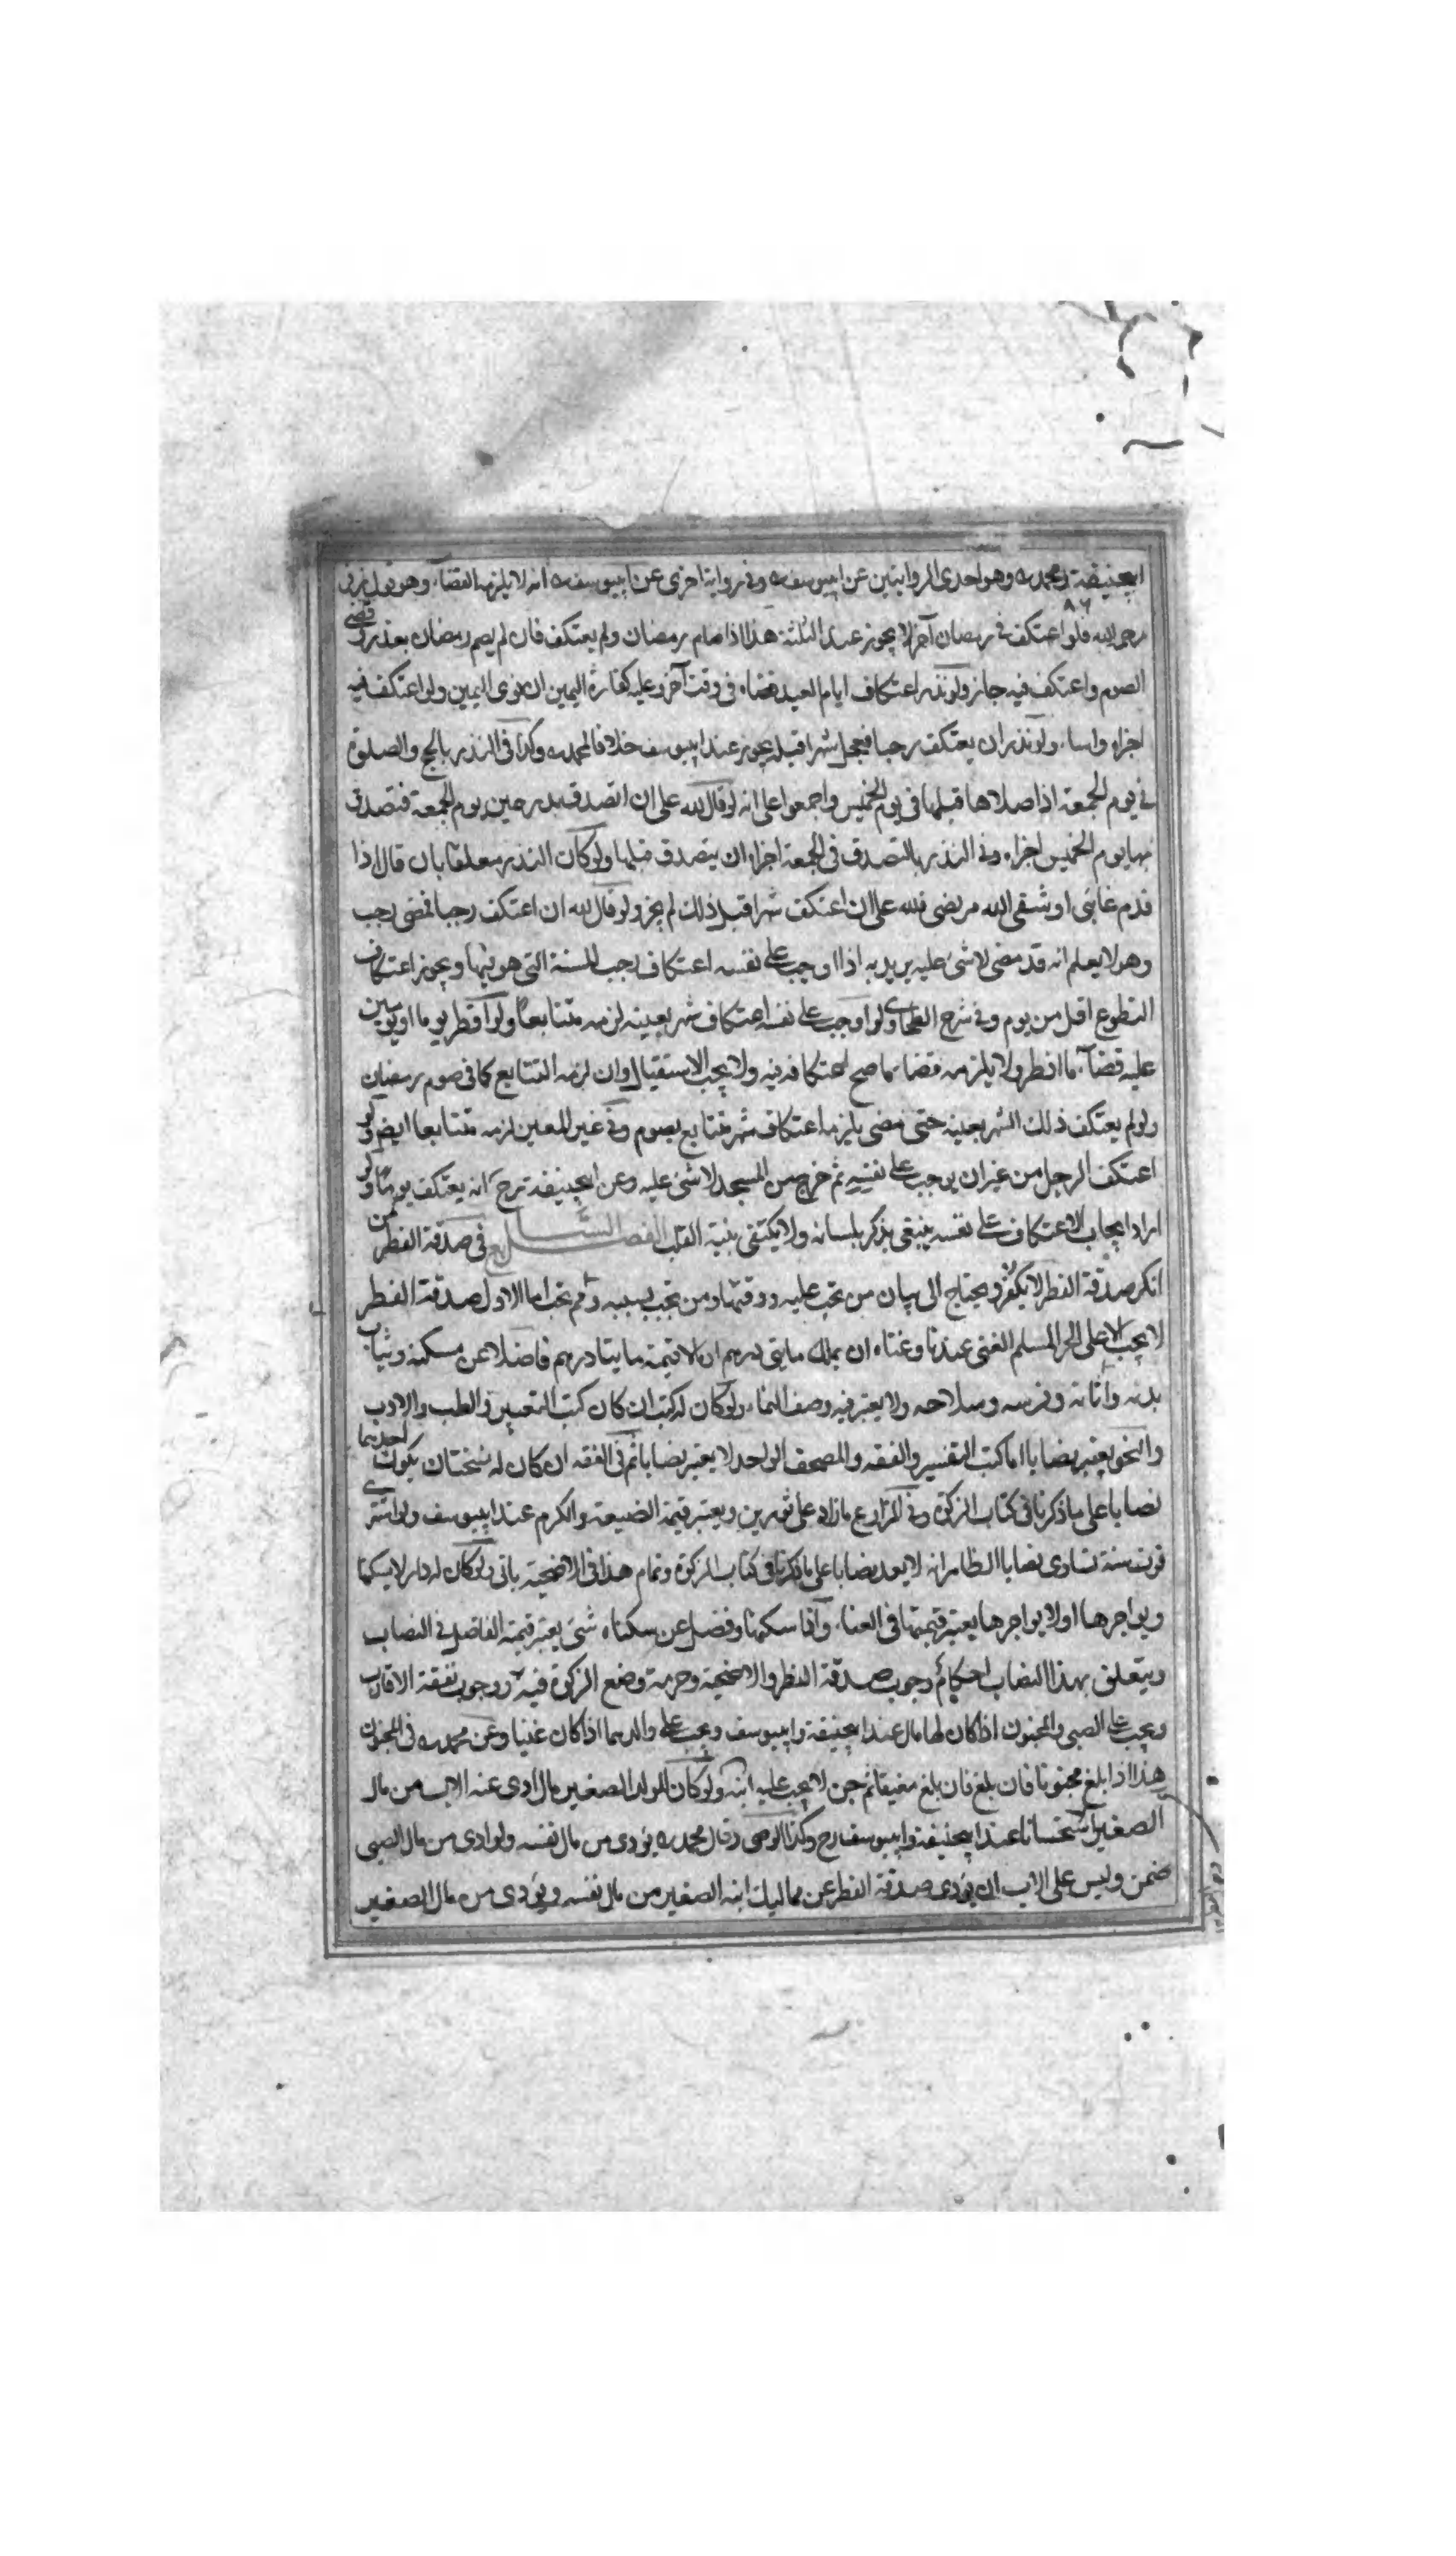 ابیحنیفة ومحمد رہ وهو احدی الروایتین عن ابیوسف رہ وفی روایة اخری عن ابیوسف رہ انه لا یلزمه القضاء وهو قول زفر
٨٦
رحمه الله فلو اعتکف فی رمضان آخر لا یجوز عند الثلثة هذا اذا صام رمضان ولم یعتکف فان لم یصم رمضان بعذر وقضی
الصوم واعتکف فیه جاز ولو نذر اعتکاف ایام العید قضاه فی وقت آخر وعلیه کفارة الیمین ان نوی الیمین ولو اعتکف فیه
اجزاه واساء ولو نذر ان یعتکف رجبا فعجل شهرا قبله یجوز عند ابیوسف خلافا لمحمد رہ وکذا فی النذر بالحج والصلوة
فی یوم الجمعة اذا صلاها قبلها فی یوم الخمیس واجمعوا علی انه لو قال لله علی ان اتصدق بدرهمین یوم الجمعة فتصدق
بها یوم الخمیس اجزاه وفی النذر بالتصدق فی الجمعة اجزاه ان یتصدق قبلها ولو کان النذر معلقا بان قال اذا
قدم غائبی او شفی الله مریضی فلله علی ان اعتکف شهرا قبل ذلك لم یجز ولو قال لله ان اعتکف رجبا فمضی رجب
وهو لا یعلم انه قد مضی لا شیء علیه یرید به اذا اوجب علی نفسه اعتکاف رجب للسنة التی هو فیها ویجوز اعتکاف
التطوع اقل من یوم وفی شرح الطحاوی ولو اوجب علی نفسه اعتکاف شهر بعینه لزمه متتابعا ولو افطر یوما او یومین
علیه قضاء ما افطر ولا یلزمه قضاء ما صح اعتکافه فیه ولا یجب الاستقبال وان لزمه التتابع کما فی صوم رمضان
ولو لم یعتکف ذلك الشهر بعینه حتی مضی یلزمه اعتکاف شهر متتابع بصوم وفی غیر المعین لزمه متتابعا ایضا ولو
اعتکف الرجل من غیر ان یوجب علی نفسه ثم خرج من المسجد لا شیء علیه وعن ابیحنیفة رح انه یعتکف یوما ولو
اراد ایجاب الاعتکاف علی نفسه ینبغی یذکر بلسانه ولا یکتفی بنیة القلب الفصل السابع فی صدقة الفطر من
انکر صدقة الفطر لا یکفر ویحتاج الی بیان من تجب علیه ووقتها ومن تجب بسببه وکم تجب اما الاول صدقة الفطر
لا یجب الا علی الحر المسلم الغنی عندنا وغناه ان یملك مایتی درهم او لا قیمة مایتا درهم فاضلا عن مسکنه وثیاب
بدنه واثاثه وفرسه وسلاحه ولا یعتبر فیه وصف النماء ولو کان له کتب ان کان کتب التعبیر والطب والادب
والنحو یعتبر نصابا اما کتب التفسیر والفقه والمصحف الواحد لا یعتبر نصابا ثم فی الفقه ان کان له نسختان یکون احدیهما
نصابا علی ما ذکرنا فی کتاب الزکوة وفی المزارع ما زاد علی ثورین ویعتبر قیمة الضیعة والکرم عند ابیوسف ولو اشتری
قوت سنة تساوی نصابا الظاهر انه لا یعد نصابا علی ما ذکرنا فی کتاب الزکوة وتمام هذا فی الاضحیة یاتی ولو کان له دار لا یسکنها
ویواجرها او لا یواجرها یعتبر قیمتها فی الغناء واذا سکنها وفضل عن سکناه شیء یعتبر قیمة الفاضل فی النصاب
ویتعلق بهذا النصاب احکام وجوب صدقة الفطر والاضحیة وحرمة وضع الزکوة فیه ووجوب نفقة الاقارب
ویجب علی الصبی والمجنون اذا کان لهما مال عند ابیحنیفة وابیوسف ویجب علی والدهما اذا کان غنیا وعن محمد رہ فی المجنون
هذا اذا بلغ مجنونا فان بلغ فان بلغ مفیقا ثم جن لا یجب علیه ابنه ولو کان للولد الصغیر مال ادی عنه الاب من مال
الصغیر استحسانا عند ابیحنیفة وابیوسف رح وکذا الوصی وقال محمد رہ یؤدی من مال نفسه ولو ادی من مال الصبی
ضمن ولیس علی الاب ان یؤدی صدقة الفطر عن ممالیك ابنه الصغیر من مال نفسه ویؤدی من مال الصغیر